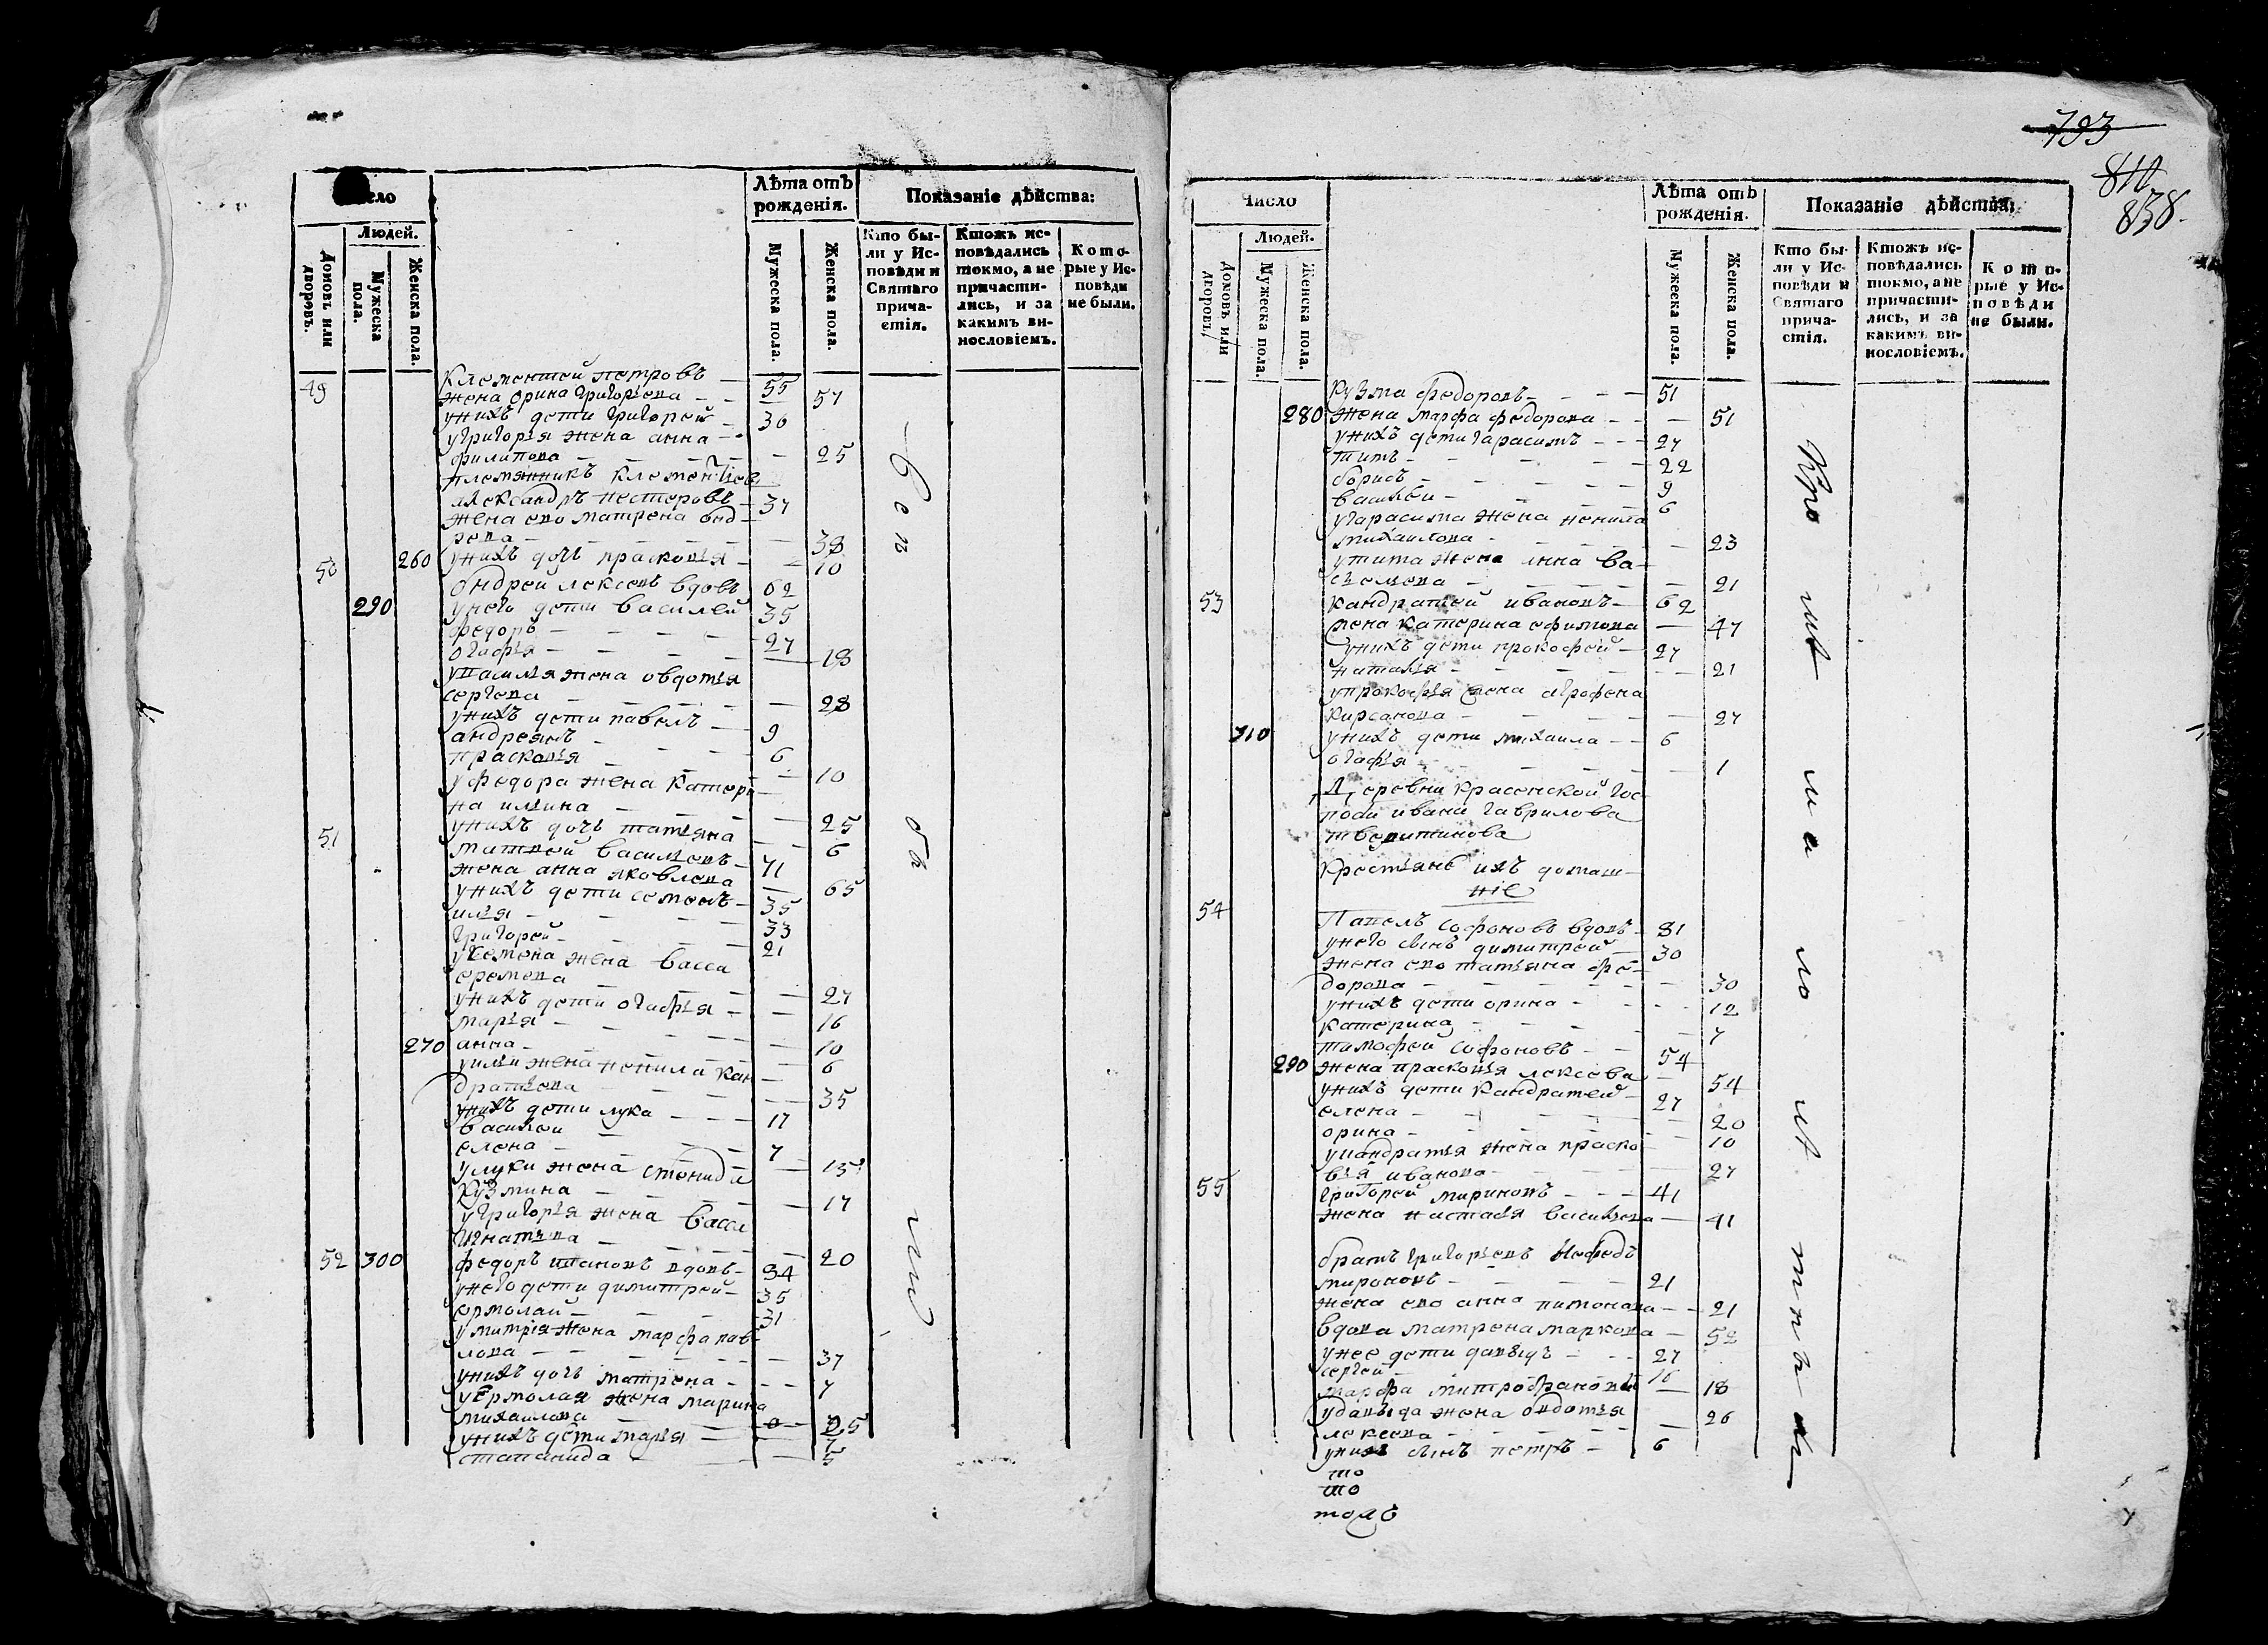 Число
Людей.
Домовъ или дворовъ.
Мужеска пола.
Женска пола.
Лѣта отъ рожденія.
Мужеска пола.
Женска пола.
Показаніе дѣйства:
Кто бы-
ли у Ис-
повѣди и
Святаго
прича-
стія.
Ктожъ ис-
повѣдались
токмо, а не
причасти-
лись, и за
какимъ ви-
нословіемъ.
Кото-
рые у Ис-
повѣди
не были.
49 Клементей петровъ — 55
жена орина григорьева — — 57
унихъ дети григорей — 30
угригорья жена анна —
филипова — — 25
племянникъ клементіев
александръ нестеровъ — 37
жена ево матрена онд
рева — — 38
260 унихъ дочь прасковья — — 10
50 ондрей лексеевъ вдовъ 62
290 унего дети василей 35
федоръ — 27
огафья — — 18
увасилья жена овдотья
сергева — — 28
унихъ дети павелъ — 9
андреянъ — 6
прасковья — — 10
уфедора жена катери
на ильина — — 25
унихъ дочь татьяна — 6
51 матвей васильевъ — 71
жена анна яковлева — 65
унихъ дети семенъ — 35
илья — 33
григорей — 21
усемена жена васса
еремева — — 27
унихъ дети огафья — — 16
марья — — 10
270 анна — — 6
уильи жена ненила кан
дратьева — — 35
унихъ дети лука — 17
василей — 7
елена — — 15
улуки жена степанида
кузмина — — 17
угригорья жена васса
игнатьева — — 20
52 300 федоръ ивановъ вдовъ — 94
унего дети димитрей — 35
ермолай — 31
умитрия жена марфа пав
лова — — 37
унихъ дочь матрена — — 7
уермолая жена марина
михаилова — — 25
унихъ дети марья — 7
степанида — — 5
Всп
об
щи
793
810
838.
Число
Людей.
Домовъ или дворовъ,
Мужеска пола.
Женска пола.
Лѣта отъ рожденія.
Мужеска пола.
Женска пола.
Показаніе дѣйства:
Кто бы-
ли у Ис-
повѣди и
Святаго
прича-
стія.
Ктожъ ис-
повѣдались
токмо, а не
причасти-
лись, и за
какимъ ви-
нословіемъ.
Кото-
рые у Ис-
повѣди
не были.
кузма федоровъ — 51
280 жена марфа федорова — — 51
унихъ дети гарасимъ — — 27
титъ — 22
борисъ — 9
василей — 6
угарасима жена ненила
михаилова — — 23
утита жена анна ва
сильева — — 21
53 кандратей ивановъ — 62
жена катерина ефимова — 47
унихъ дети прокофей — 27
наталья — — 21
упрокофья жена агрофена
кирсанова — — 27
310 унихъ дети михаила — — 6
огафья — — 1
Деревни красенской гос
поди ивана гаврилова
тверитинова
Крестьяне ихъ домаш
ніе
54 Павелъ софоновъ вдовъ — 81
унего сынъ димитрей — 30
жена ево татьяна фе
дорова — — 30
унихъ дети орина — — 12
катерина — — 7
тимофей софоновъ — — 54
290 жена прасковья лексева — 54
унихъ дети кандратей — 27
елена — — 20
орина — — 10
укандратья жена праско
вья иванова — — 27
55 григорей мироновъ — — 41
жена настасья васильева — 41
братъ григорьевъ нефедъ
мироновъ — 21
жена ево анна питонова — — 21
вдова матрена маркова — 52
унее дети давыдъ — — 27
сергей — 16
марфа митрофановы — 18
удавыда жена овдотья
лексева — — 26
унихъ сынъ петръ — 6
то
то
тояѣ